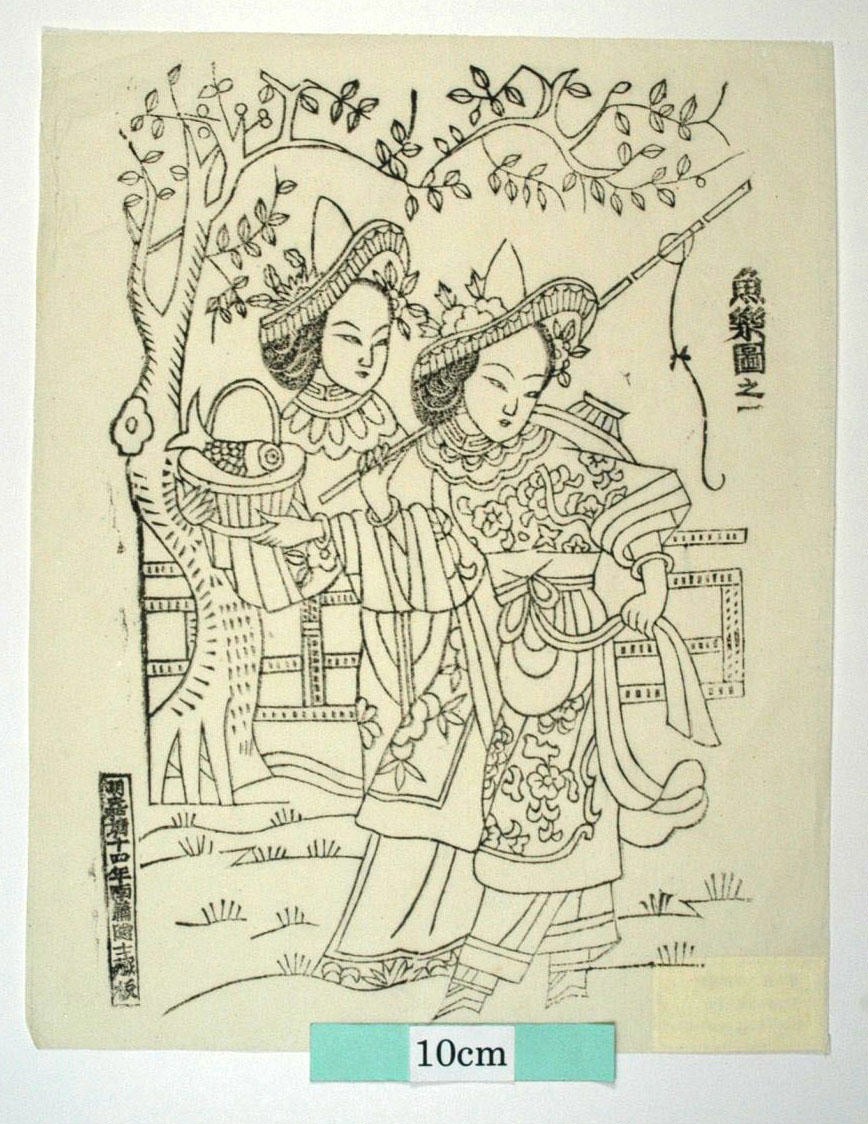 魚樂圖之一
明嘉靖十四年南蕭國士藏版
10cm